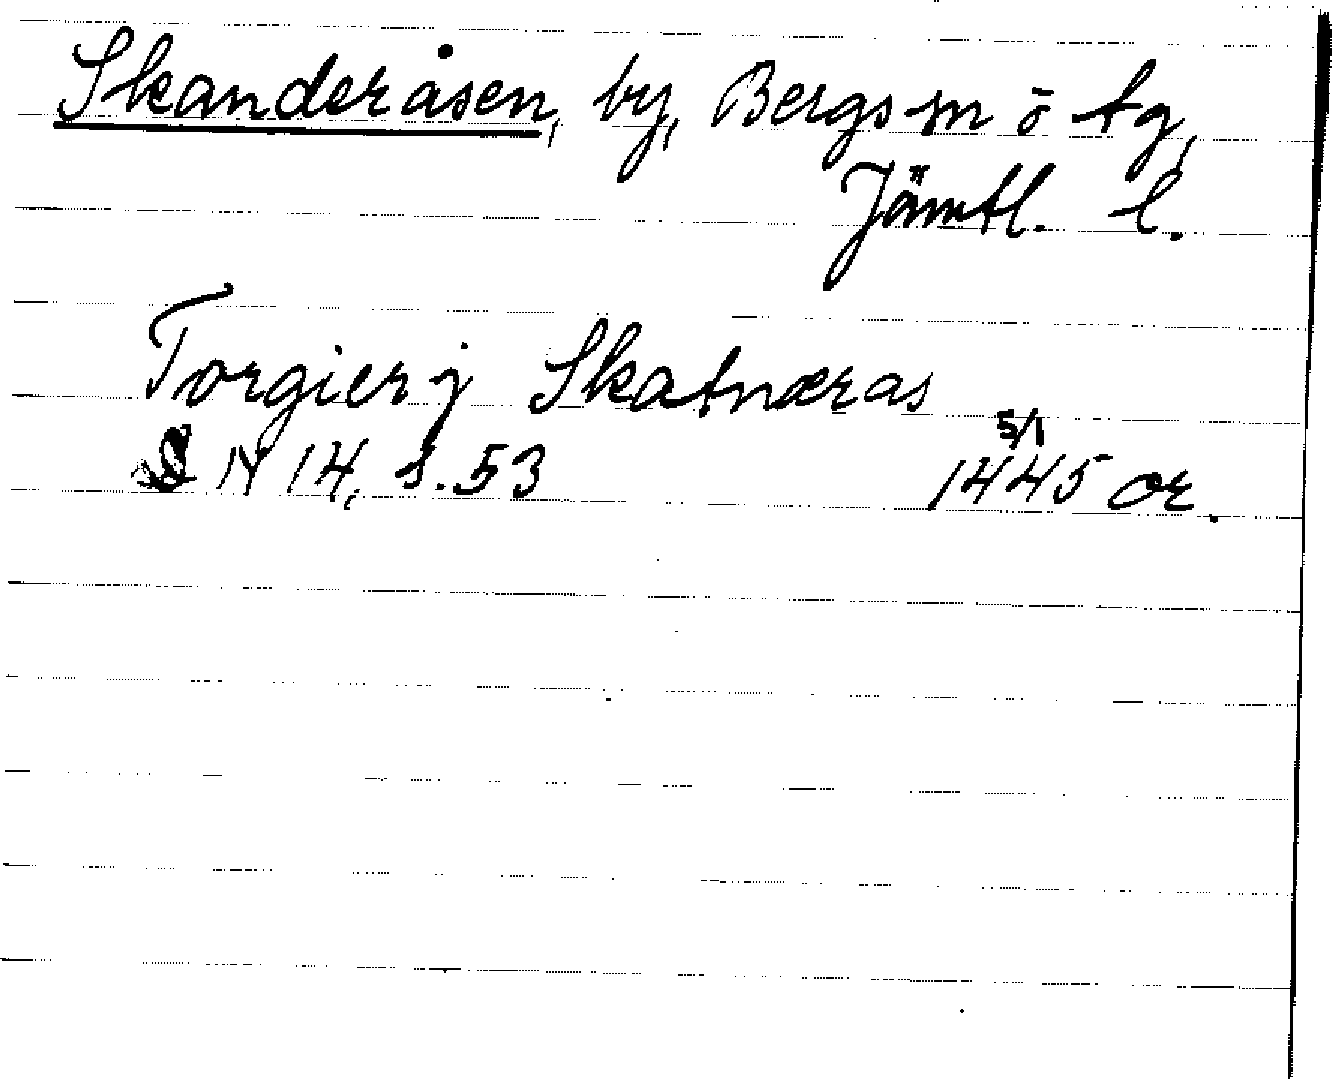 Skanderåsen, by, Bergs sn ö tg,
Jämtl. l.
Torgier j Skatnæras
N 14, s. 53 5/1 1445 or.